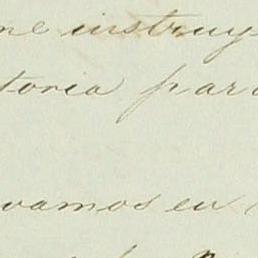 me instruy
toria para
vamos en